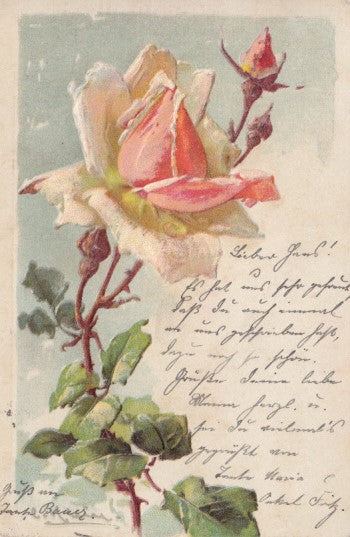 Lieber Hans!
Es hat uns sehr gefreut
daß Du auch einmal
an uns geschrieben hast,
dazu noch so schön.
Grüße Deine liebe
Mama herzl. u.
sei Du vielmals
gegrüßt von
Tante Maria
Onkel Fritz.
Gruß an
Tante